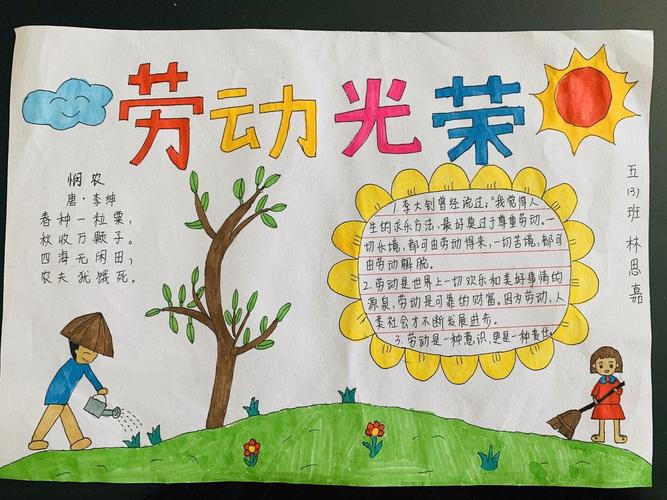 劳动光荣
悯农
唐·李坤
春种一粒粟，
秋收万颗子。
四海无闲田，
农夫犹饿死。
1.李大钊曾经说过："我觉得人
生的求乐方法，最好莫过于尊重劳动。一
切乐境，都可由劳动得来，一切苦境，都可
由劳动解脱。
2.劳动是世界上一切欢乐和美好事情的
源泉，劳动是可靠的财富。因为劳动，人
类社会才不断发展进步。
3.劳动是一种意识，更是一种责任
五(3)班 林思嘉